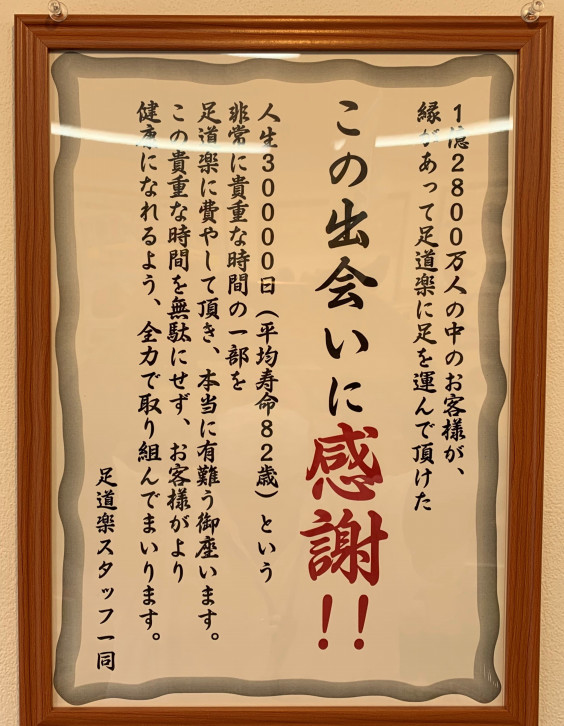 1億2800万人の中のお客様が、
縁があって足道楽に足を運んで頂けた
この出会いに感謝!!
人生30000日(平均寿命82歳)という
非常に貴重な時間の一部を
足道楽に費やして頂き、本当に有難う御座います。
この貴重な時間を無駄にせず、お客様がより
健康になれるよう、全力で取り組んでまいります。
足道楽スタッフ一同